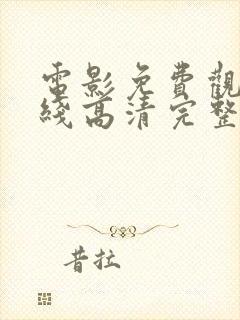 電影免費觀
綫高清完整
昔拉